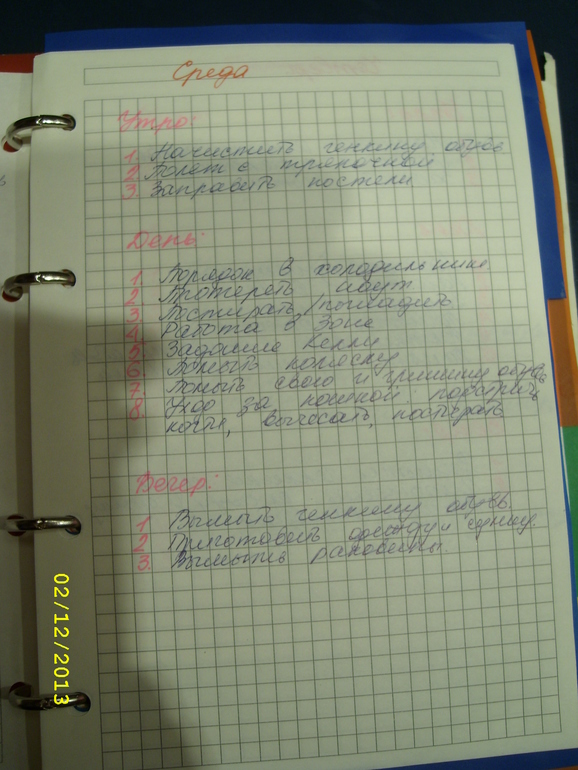 Среда
Утро:
1. Начистить генкину обувь
2. Полет с тряпочкой
3. Заправить постели
День:
1. Порядок в холодильнике
2. Протереть
3. Постирать/погладить
4. Работа в Зоне
5. Задание Келли
6. Помыть коляску
7. Помыть свою и гришину обувь
8. Уход за кошкой: подстричь
когти, вычесать, постирать
Вечер:
1 Вымыть генкину обувь.
2 Приготовить одежду и сумку.
3. Вымыть раковины.
02/12/2013